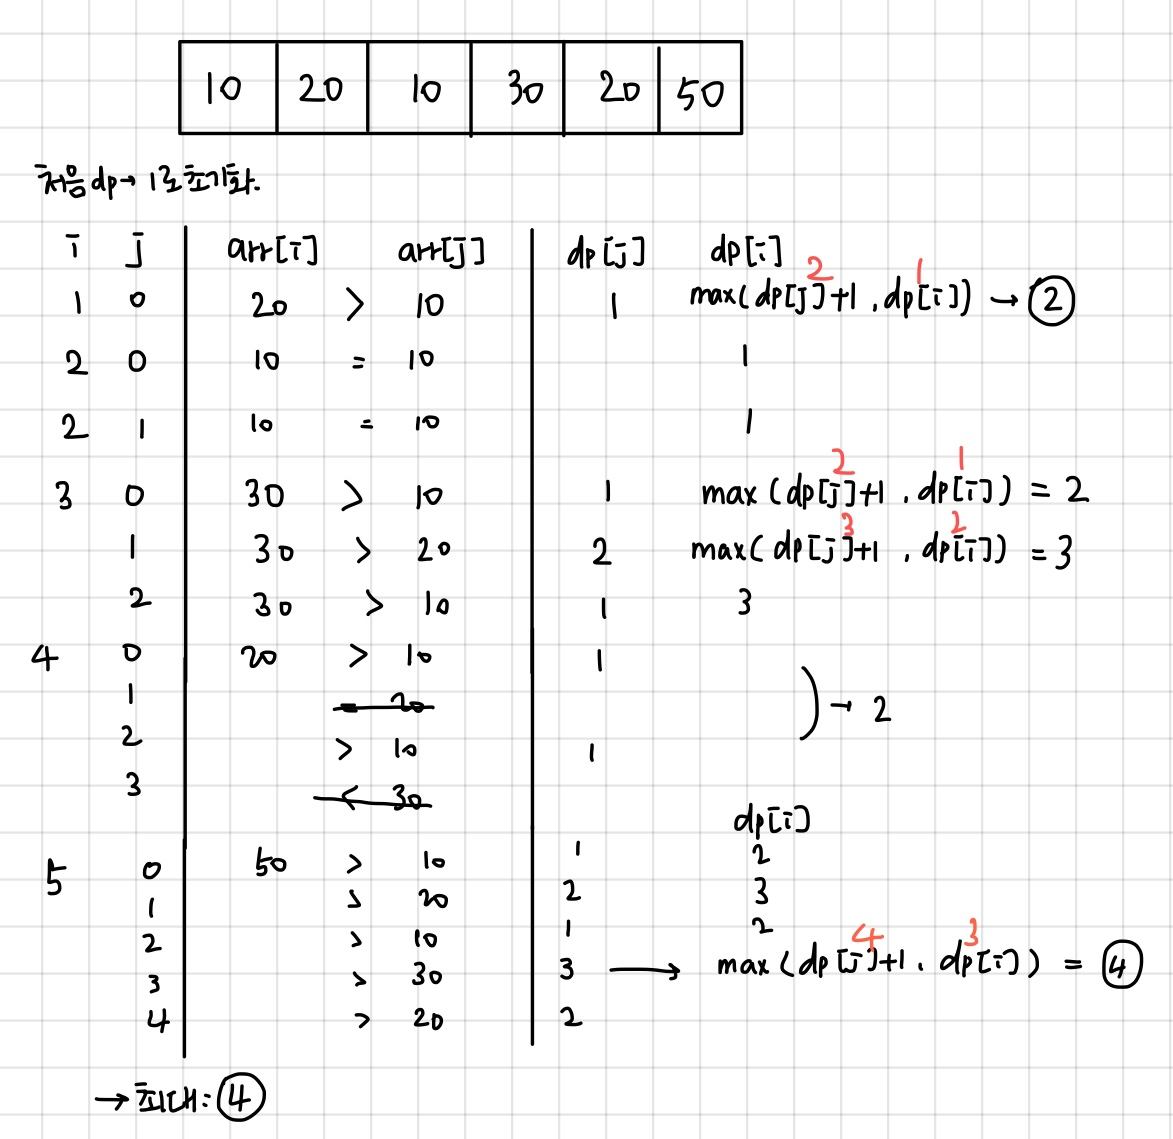 10 20 10 30 20 50
처음 dp → 1로 초기화.
i j arr[i] arr[j] dp[j] dp[i]
2 1
1 0 20 > 10 1 max(dp[j]+1, dp[i]) → 2
2 0 10 = 10 1
2 1 10 = 10 1
2 1
3 0 30 > 10 1 max(dp[j]+1, dp[i]) = 2
3 2
1 30 > 20 2 max(dp[j]+1, dp[i]) = 3
2 30 > 10 1 3
4 0 20 > 10 1
1 = 20
) → 2
2 > 10 1
3 < 30
dp[i]
5 0 50 > 10 1 2
1 > 20 2 3
2 > 10 1 2
4 3
3 > 30 3 → max(dp[j]+1, dp[i]) = 4
4 > 20 2
→ 최대: 4